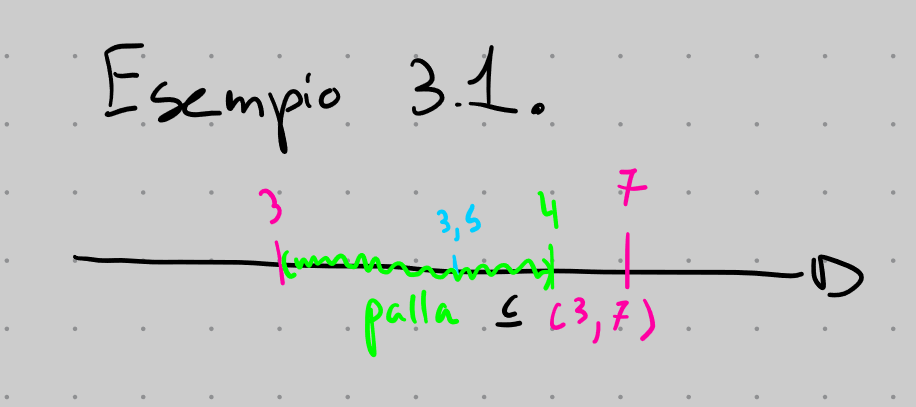 Esempio 3.1.
3 3,5 4 7
palla ⊆ (3,7)